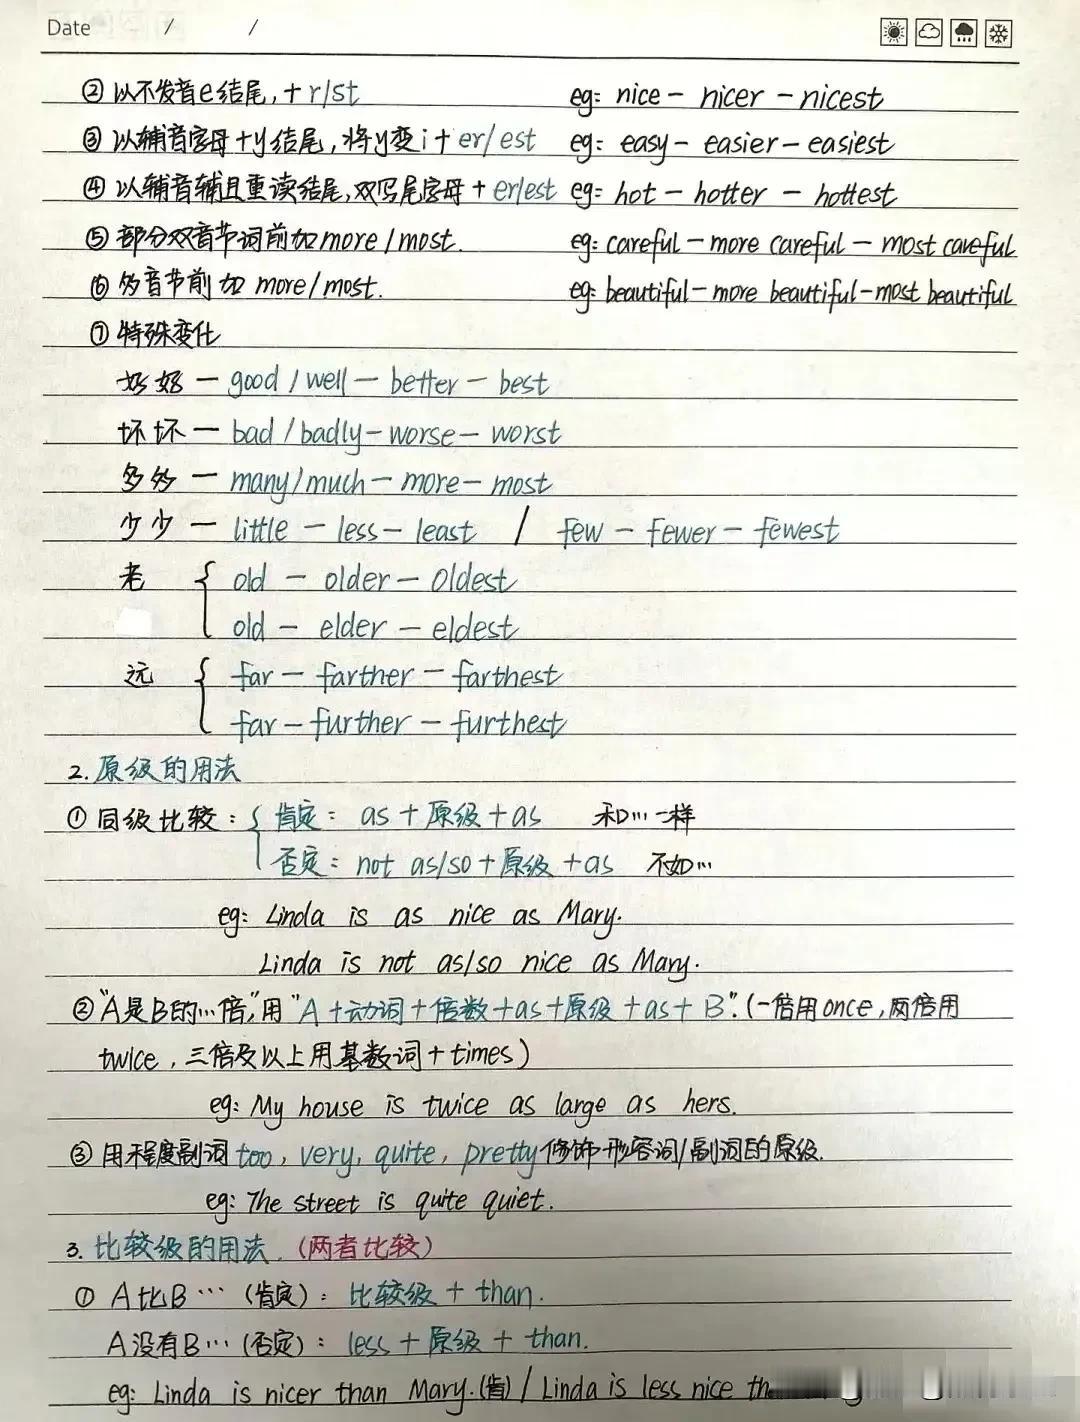 Date / /
② 以不发音e结尾,+r/st eg: nice - nicer - nicest
③ 以辅音字母+y结尾,将y变i+er/est eg: easy - easier - easiest
④ 以辅音辅且重读结尾,双写尾字母+er/est eg: hot - hotter - hottest
⑤ 部分双音节词前加more/most. eg: careful - more careful - most careful
⑥ 多音节前加 more/most. eg: beautiful - more beautiful - most beautiful
⑦ 特殊变化
好好 — good / well — better — best
坏坏 — bad / badly — worse — worst
多多 — many/much — more — most
少少 — little — less — least / few — fewer — fewest
老 { old — older — oldest
old — elder — eldest
远 { far — farther — farthest
far — further — furthest
2. 原级的用法
① 同级比较: { 肯定: as + 原级 + as 和…一样
否定: not as/so + 原级 + as 不如…
eg: Linda is as nice as Mary.
Linda is not as/so nice as Mary.
② "A是B的…倍",用"A+动词+倍数+as+原级+as+B".(一倍用once,两倍用
twice,三倍及以上用基数词+times)
eg: My house is twice as large as hers.
③ 用程度副词too, very, quite, pretty修饰形容词/副词的原级.
eg: The street is quite quiet.
3. 比较级的用法.(两者比较)
① A比B…(肯定): 比较级 + than.
A没有B…(否定): less + 原级 + than.
eg: Linda is nicer than Mary.(肯) / Linda is less nice